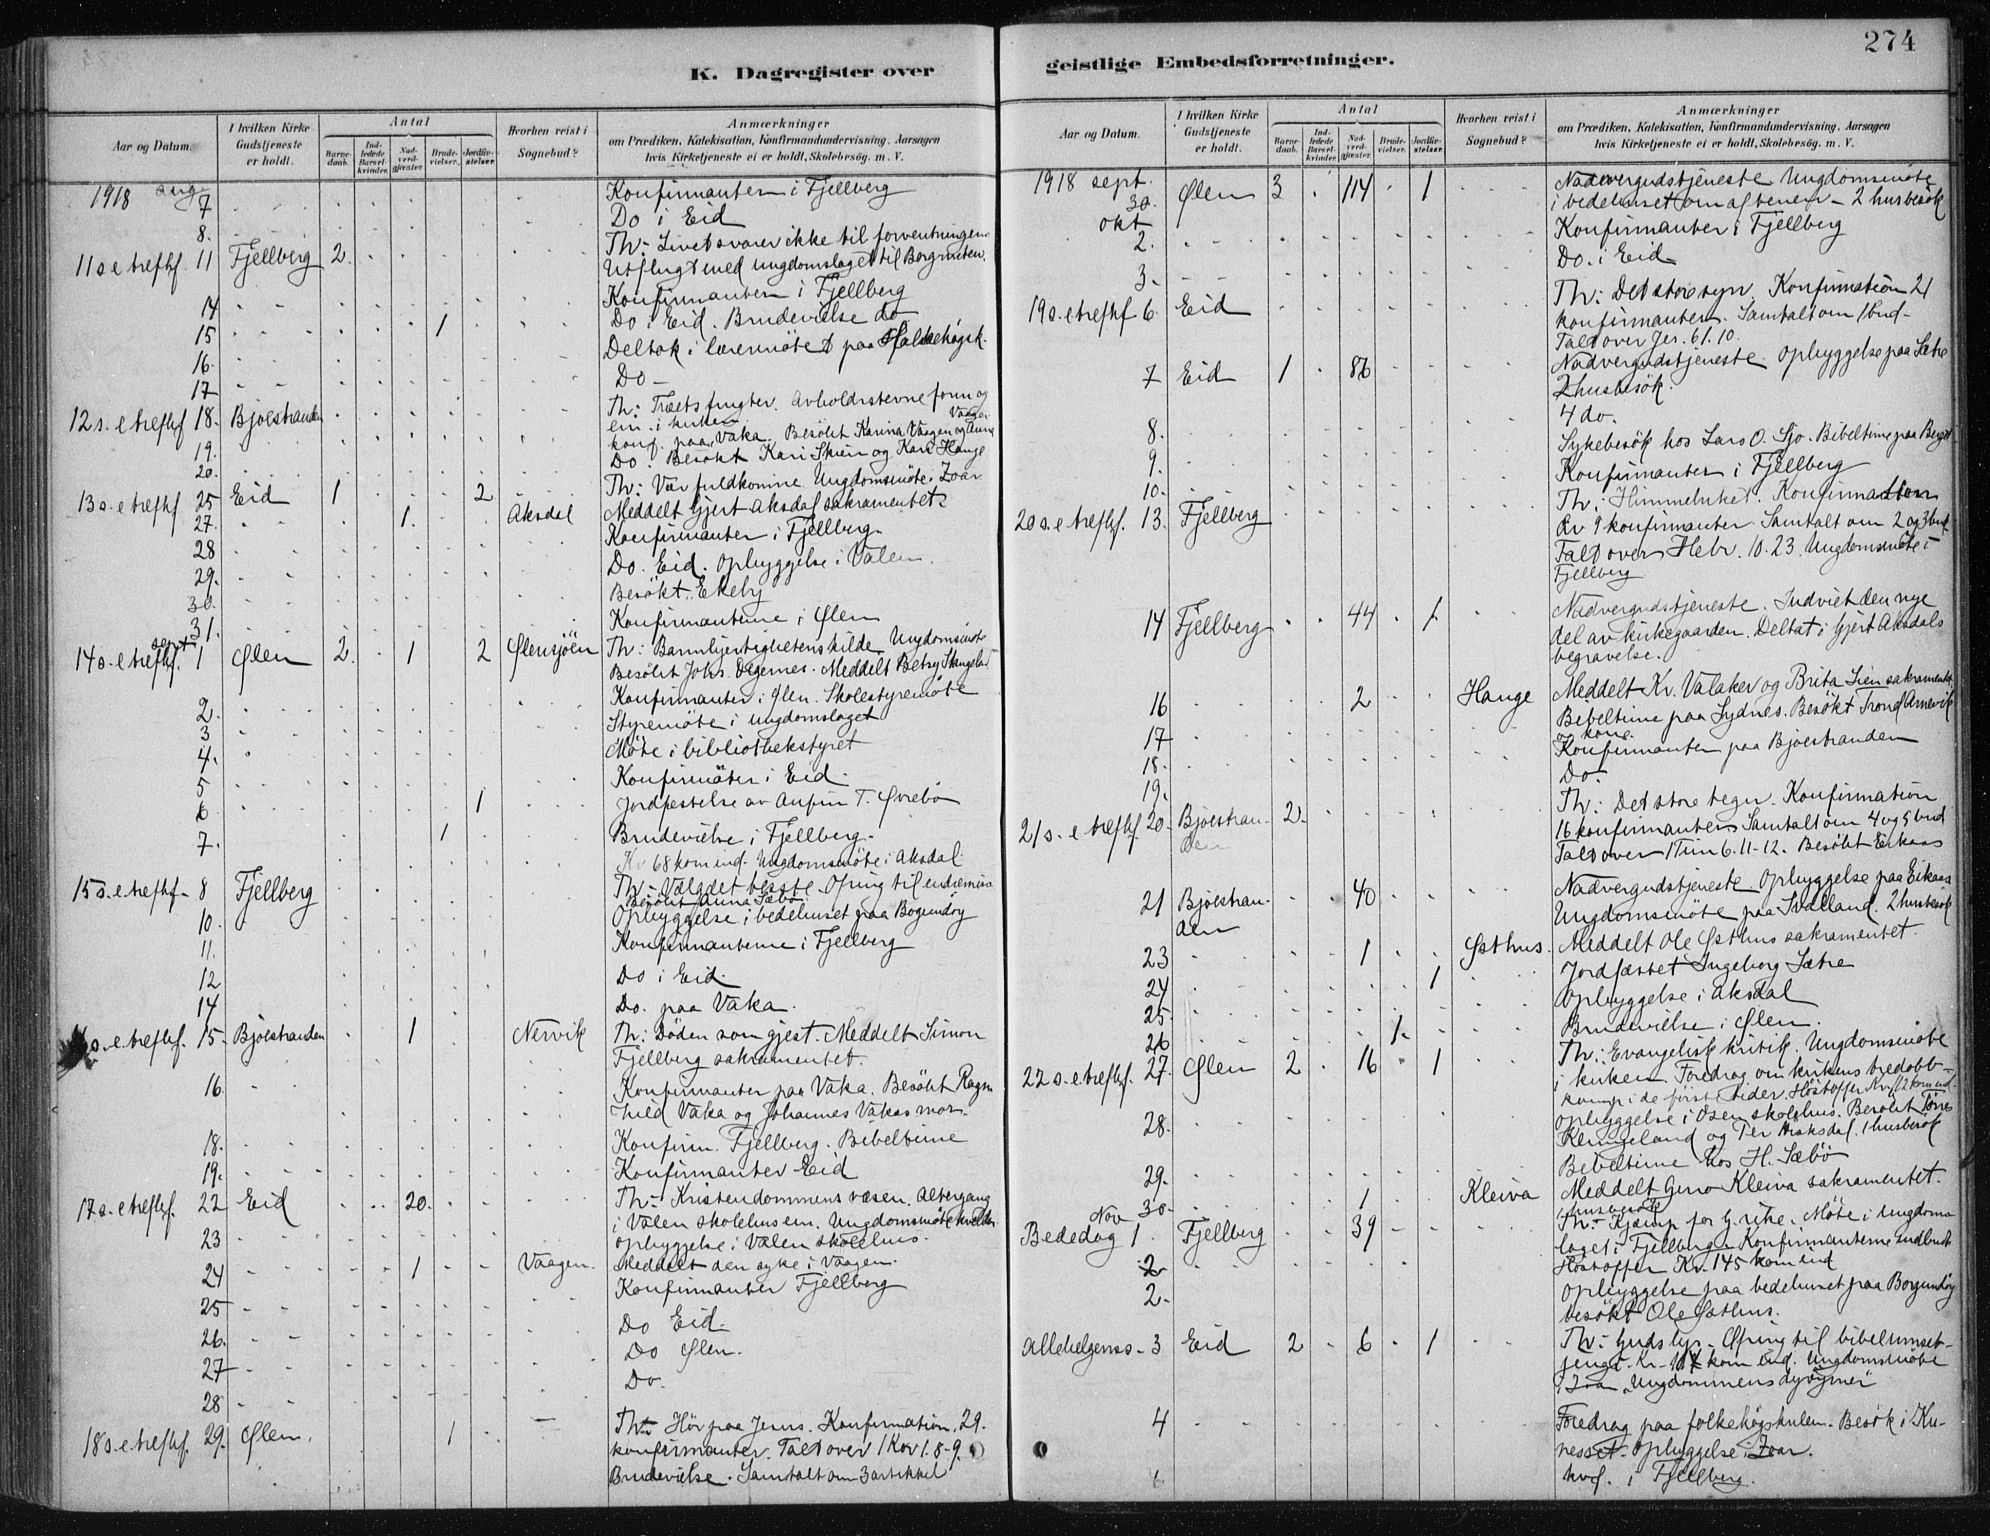 274
K. Dagregister over
geistlige Embedsforretninger.
Aar og Datum.
I hvilken Kirke Gudstjeneste er holdt.
Antal
Barnedaab.
Indledede Barselkvinder.
Nadverdgjæster.
Brudevielser.
Jordfæstelser.
Hvorhen reist i Sognebud?
Anmærkninger
om Prædiken, Katekisation, Konfirmandundervisning, Aarsagen
hvis Kirketjeneste ei er holdt, Skolebesøg. m. V.
1918 aug. 7 Konfirmanter i Fjellberg
8. Do i Eid
11 s e trefhf. 11 Fjellberg 2 Th: Livet svarer ikke til forventningene
Utflugt med ungdomslaget til
14 Konfirmanter i Fjellberg
15 1 Do i Eid. Brudevielse do
16. Deltok i læremøte paa
17 Do
12 s. e trefhf 18. Bjoestranden Th: Træets frugter. Avholdsstevne form og
em. i kirken
19. konf. paa Vaka. Besøkt Karina Vaagen og Anna Vaagen
20. Do. Besøkt Kari Skeie og Kari Hauge
13 s. e trefhf. 25 Eid 1 2 Th: Vær fuldkomne. Ungdomsmøte i Zoar
27. 1. Aksdal Meddelt Gjert Aksdal sakramentet
28 Konfirmanter i Fjellberg
29. Do. Eid. Opbyggelse i Valen
30. Besøkt Ekeby
31. Konfirmanterne i Ølen
14 s. e trefhf. sept 1 Ølen 2. 1 2 Ølensjøen Th: Barmhjertighetens kilde. Ungdomsmøte
Besøkt Johs. Degernes. Meddelt Betzy Stangeland
2. Konfirmanter i Ølen. Skolestyremøte
3 Styremøte i ungdomslaget
4. Møte i bibliothekstyret
5 Konfirmanter i Eid.
6 1 Jordfestelse av Anfin T. Øvrebø
7. 1 Brudevielse i Fjellberg.
Kr 68 kom ind. Ungdomsmøte i Aksdal
15 s. e trefhf - 8 Fjellberg Th: Vælg det beste. Ofring til indremiss.
Besøkt Anna Sæbø
10. Opbyggelse i bedehuset paa Borgundøy
11. Konfirmanterne i Fjellberg
12 Do i Eid
14 Do. paa Vaka.
s. e. trefhf. 15 Bjoestranden 1 Nervik Th: Døden som gjest. Meddelt Simon
Fjellberg sakramentet.
16. Konfirmanter paa Vaka. Besøkt Ragn
hild Vaka og Johannes Vakas mor.
18. Konfirm. Fjellberg. Bibeltime
19. Konfirmanter Eid
17 s. e trefhf. 22 Eid 20. Th: Kristendommens væsen. Altergang
i Vaalen skolehus em. Ungdomsmøte kvelden
23 Opbyggelse i Vælen skolehus.
24 1 Vaagen. Meddelt den syke i Vaagen.
25 Konfirmanter Fjellberg
26. Do Eid.
27 Do Ølen.
28 Do.
18 s. e trefhf. 29. Ølen. 1 Th: Hør paa Jesus. Konfirmation, 29.
konfirmanter. Talt over 1 Kor 1. 8-9.
Brudevielse. Samtalt om 3 artikkel
Aar og Datum.
I hvilken Kirke Gudstjeneste er holdt.
Antal
Barnedaab.
Indledede Barselkvinder.
Nadverdgjæster.
Brudevielser.
Jordfæstelser.
Hvorhen reist i Sognebud?
Anmærkninger
om Prædiken, Katekisation, Konfirmandundervisning, Aarsagen
hvis Kirketjeneste ei er holdt, Skolebesøg. m. V.
1918 sept. 30. Ølen 3 114 1 Nadvergudstjeneste. Ungdomsmøte
i bedehuset om aftenen - 2 husbesøk
okt 2. Konfirmanter i Fjellberg
3. Do. i Eid
19 s. e trefhf 6. Eid Th: Det store syn. Konfirmation 21
konfirmanter. Samtalt om 1 bud -
Talt over Jer. 61. 10.
7 Eid 1 86 Nadvergudstjeneste. Opbyggelse paa Sætre
2 husbesøk
8. 4 do.
9. Sykebesøk hos Lars O. Sjo. Bibeltime paa Berge
10. Konfirmanter i Fjellberg
20 s. e trefhf. 13. Fjellberg Th: Himmelriket. Konfirmation
av 9 konfirmanter. Samtalt om 2 og 3 bud
Talt over Hebr. 10. 23. Ungdomsmøte i
Fjellberg
14 Fjellberg 44 1 Nadvergudstjeneste. Indviet den nye
del av kirkegaarden. Deltat i Gjert Aksdals
begravelse.
16 2 Hauge Meddelt Kr. Valaker og Brita Lien sakramentet
17 Bibeltime paa Sydnes. Besøkt Trond Arnevik
og kone.
18. Konfirmanter paa Bjoestranden
19. Do
21 s. e trefhf. 20. Bjoestranden 2. Th: Det store tegn. Konfirmation
16 konfirmanter. Samtalt om 4 og 5 bud
Talt over 1 Tim 6. 11-12. Besøkt Eikaas
21 Bjoestranden 40 Nadvergudstjeneste. Opbyggelse paa Eikaas
Ungdomsmøte paa Svalland. 2 husbesøk
23 1 Østhus. Meddelt Ole Østhus sakramentet.
24 1 Jordfæstet Ingeborg Sætre
25 Opbyggelse i Aksdal
26 1. Brudevielse i Ølen.
22 s. e. trefhf. 27. Ølen 2 16 1 Th: Evangelisk kritik. Ungdomsmøte
i kirken. Foredrag om kirkens
kamp i de første tider. Høstoffer Kr. 12 kom ind.
28. Opbyggelse i Osen skolehus. Besøkt Tørres
Rengeland og Per Aaksdal. 1 husbesøk
29. Bibeltime hos H. Sæbø
30. 1 Kleiva Meddelt Kleiva sakramentet.
1 husbesøk
Bededag Nov 1. Fjellberg 39 Th: Kjæmp for G. rike. Møte i ungdoms
laget i Fjellberg. Konfirmanterne indbudt
2 Høstoffer Kr. 145 kom ind
2. Opbyggelse paa bedehuset paa Borgundøy
besøkt Ole Østhus.
Allehelgens - 3 Eid 2 6 1 Th: Guds lys - Ofring til bibelmset-
jengt. Kr - 107 kom ind. Ungdomsmøte
i Zoar "Ungdommens
4 Foredrag paa folkehøgskulen. Besøk i Ku-
nesset. Opbyggelse i Zoar.
kvf. i Fjellberg.